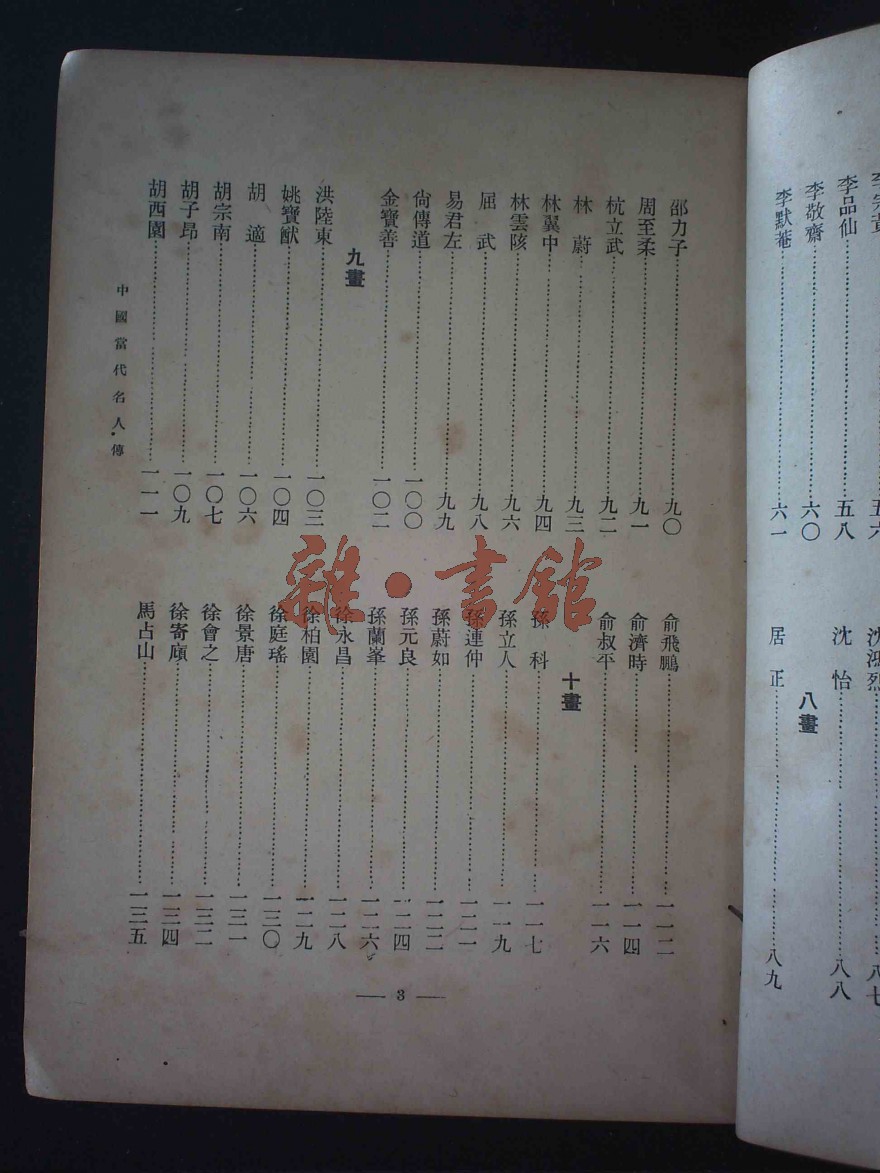 李品仙⋯⋯五八
李敬齋⋯⋯六〇
李默菴⋯⋯六一
沈鴻烈⋯⋯八七
沈　怡⋯⋯八八
八畫
居　正⋯⋯八九
邵力子⋯⋯九〇
周至柔⋯⋯九一
杭立武⋯⋯九二
林　蔚⋯⋯九三
林翼中⋯⋯九四
林雲陔⋯⋯九六
屈　武⋯⋯九八
易君左⋯⋯九九
尙傳道⋯⋯一〇〇
金寶善⋯⋯一〇二
九畫
洪陸東⋯⋯一〇三
姚寶猷⋯⋯一〇四
胡　適⋯⋯一〇六
胡宗南⋯⋯一〇七
胡子昂⋯⋯一〇九
胡西園⋯⋯一一一
俞飛鵬⋯⋯一一二
俞濟時⋯⋯一一四
俞叔平⋯⋯一一六
十畫
孫　科⋯⋯一一七
孫立人⋯⋯一一九
孫連仲⋯⋯一二一
孫蔚如⋯⋯一二二
孫元良⋯⋯一二四
孫蘭峯⋯⋯一二六
徐永昌⋯⋯一二八
徐柏園⋯⋯一二九
徐庭瑤⋯⋯一三〇
徐景唐⋯⋯一三一
徐會之⋯⋯一三二
徐寄廎⋯⋯一三四
馬占山⋯⋯一三五
中國當代名人傳
— 3 —
雜·書館